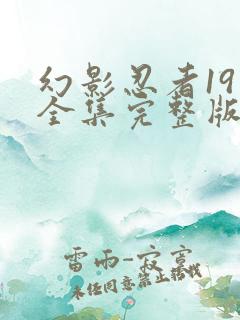 幻影忍者19
全集完整版
雷雨-寂寞
未经同意禁止转载